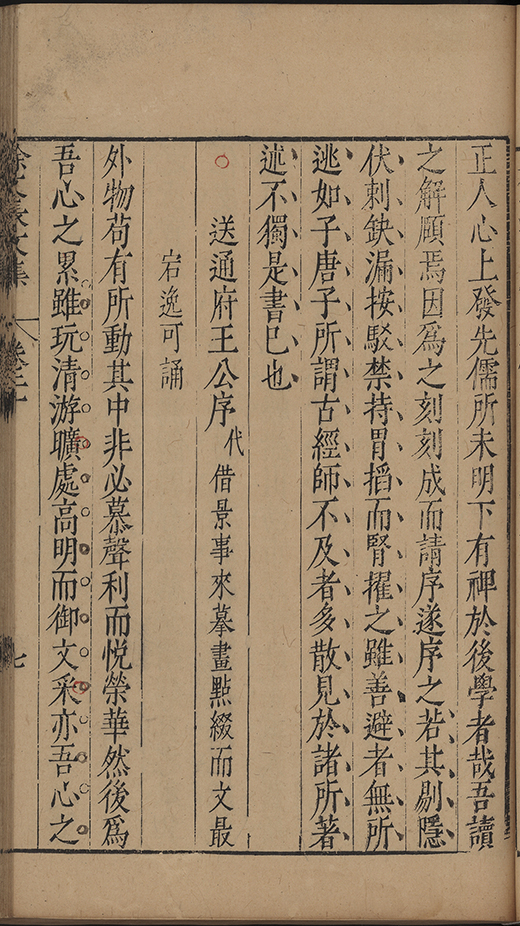 正人心上發先儒所未明下有裨於後學者哉吾讀
之解頤焉因爲之刻刻成而請序遂序之若其剔隱
伏刺缺漏按駁禁持胃搯而腎擢之雖善避者無所
逃如子唐子所謂古經師不及者多散見於諸所著
述不獨是書已也
送通府王公序代 借景事來摹畫點綴而文最
宕逸可誦
外物苟有所動其中非必慕聲利而悅榮華然後爲
吾心之累雖玩清游曠處高明而御文采亦吾心之
徐文長文集 卷二十 七